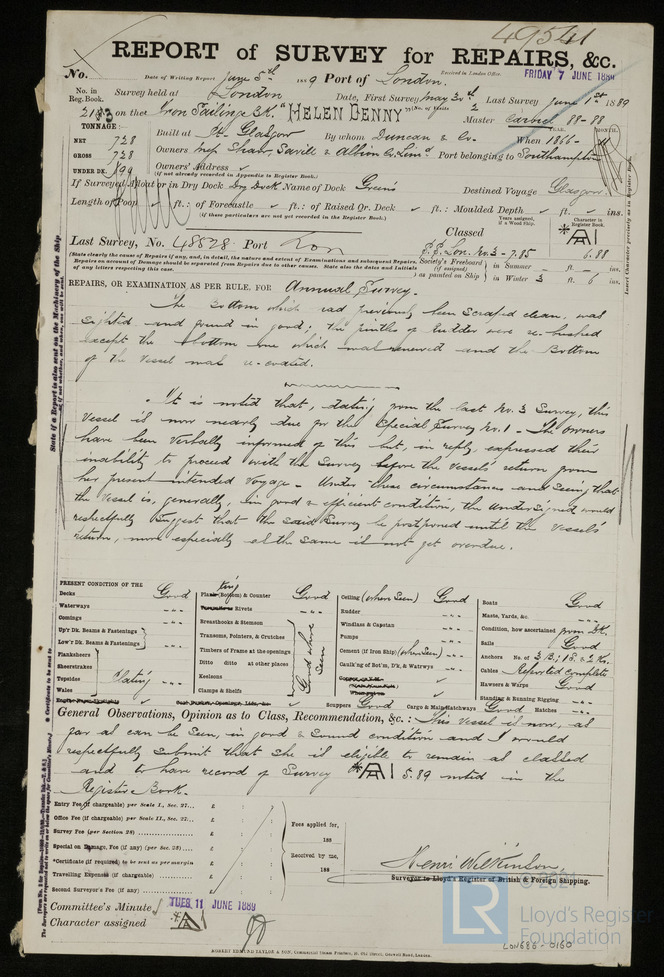 49541
REPORT of SURVEY for REPAIRS, &c.
No. Date of Writing Report June 5th 1889 Port of London. Received in London Office. FRIDAY 7 JUNE 1889
No. in Reg. Book. Survey held at London Date, First Survey May 30th Last Survey June 1st 1889
on the Iron Sailing Bk. "HELEN DENNY" (No. of Visits 2 Master
TONNAGE:
NET 728
GROSS 728
UNDER DK. 699
Built at Pt. Glasgow By whom Duncan & Co. When 1866 YEAR. MONTH.
Owners Mess Shaw, Savill & Albion Co. Limd Port belonging to Southampton
Owners' Address
(if not already recorded in Appendix to Register Book.)
If Surveyed Afloat or in Dry Dock Dry Dock Name of Dock Green's Destined Voyage Glasgow.
Length of Poop ft.: of Forecastle ft.: of Raised Qr. Deck ft.: Moulded Depth ft. ins.
(if these particulars are not yet recorded in the Register Book.)
Years assigned, if a Wood Ship. Character in Register Book.
Last Survey, No. 48828 Port Lon Classed S.S. Lon. No. 3 - 7.85 A1 6.88
(State clearly the cause of Repairs, if any, and, in detail, the nature and extent of Examinations and subsequent Repairs.
Repairs on account of Damage should be separated from Repairs due to other causes. State also the dates and Initials
of any letters respecting this case.
Society's Freeboard (if assigned) as painted on Ship } in Summer ft. ins.
in Winter 3 ft. 6 ins.
REPAIRS, OR EXAMINATION AS PER RULE, FOR Annual Survey.
The Bottom which had previously been scraped clean, was
sighted and found in good; the pintles of Rudder were re-bushed
except the bottom one which was renewed and the Bottom
of the Vessel was re-coated.
It is noted that, dating from the last No. 3 Survey, this
Vessel is now nearly due for the Special Survey No. 1 - The Owners
have been Verbally informed of this but, in reply, expressed their
inability to proceed with the Survey before the Vessels' return from
her present intended Voyage - Under these circumstances and seeing that
the Vessel is, generally, in good & efficient condition, the Undersigned would
respectfully suggest that the said Survey be postponed until the Vessel's
return, more especially as the same is not yet overdue.
PRESENT CONDITION OF THE
Decks Good
Waterways
Comings
Up'r Dk. Beams & Fastenings
Low'r Dk. Beams & Fastenings
Planksheers
Sheerstrakes
Topsides
Wales
Plating
Plating (Bottom) & Counter Good
Rivets
Breasthooks & Stemson
Transoms, Pointers, & Crutches
Timbers of Frame at the openings
Ditto ditto at other places
Keelsons
Clamps & Shelfs
Good where seen
Scuppers Good
Ceiling (where seen) Good
Rudder
Windlass & Capstan
Pumps
Cement (if Iron Ship) (where seen) Good
Caulk'ng of Bot'm, Dk., & Watrwys
Cargo & Main Hatchways Good Hatches
Boats Good
Masts, Yards, &c.
Condition, how ascertained from Dk.
Sails Good
Anchors No. of 3 B.; 1 S. & 2 K.
Cables Reported complete
Hawsers & Warps Good
Standing & Running Rigging
General Observations, Opinion as to Class, Recommendation, &c.: This Vessel is now, as
far as can be seen, in good & sound condition and I would
respectfully submit that she is eligible to remain as classed
and to have record of Survey A1 5.89 noted in the
Register Book.
Entry Fee (if chargeable) per Scale I., Sec. 27... £
Office Fee (if chargeable) per Scale II., Sec. 22... £
Survey Fee (per Section 28) £
Special on Damage, Fee (if any) (per Sec. 28) £
*Certificate (if required) to be sent as per margin £
Travelling Expenses (if chargeable) £
Second Surveyor's Fee (if any) £
Fees applied for,
188
Received by me,
188
Henri Wilkinson
Surveyor to Lloyd's Register of British & Foreign Shipping.
Committee's Minute TUES 11 JUNE 1889
Character assigned A1
LR © 2021
Lloyd's Register
Foundation
LON686-0160